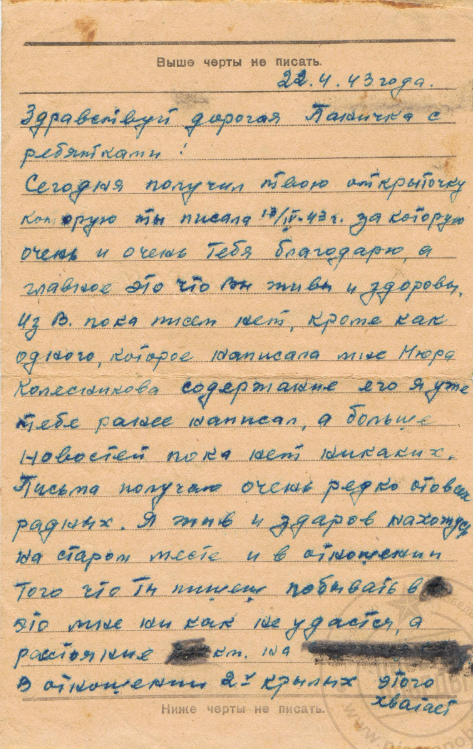 Выше черты не писать.
22.4.43 года.
Здравствуй дорогая Паничка с
ребятками!
Сегодня получил твою открыточку
которую ты писала 17/IV-43 г. за которую
очень и очень тебя благодарю, а
главное это что Вы живы и здоровы.
Из В. пока писем нет, кроме как
одного, которое написала мне Нюра
Колесникова содержание его я уже
тебе ранее написал, а больше
новостей пока нет никаких.
Письма получаю очень редко от всех
радных. Я жив и здаров нахожусь
на старом месте и в отношении
того что ты пишеш побывать в
это мне ни как не удастся, а
растояние км. на
В отношении 2х крылых этого
хватает
Ниже черты не писать.